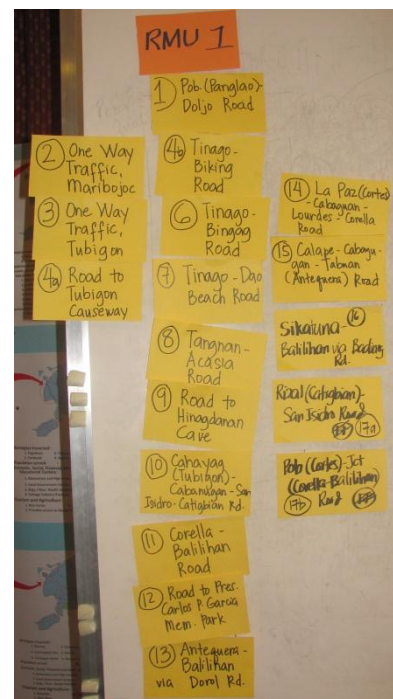 RMU 1
1 Pob. (Panglao)-
Doljo Road
2 One Way
Traffic,
Maribojoc
3 One Way
Traffic,
Tubigon
4a Road to
Tubigon
Causeway
4b Tinago-
Biking
Road
6 Tinago-
Bingag
Road
7 Tinago-Dao
Beach Road
8 Tangnan-
Acasia
Road
9 Road to
Hinagdanan
Cave
10 Cahayag
(Tubigon)-
Cabanugan-San
Isidro-Catigbian Rd.
11 Corella-
Balilihan
Road
12 Road to Pres.
Carlos P. Garcia
Mem. Park
13 Antequera-
Balilihan
via Dorol Rd.
14 La Paz (Cortes)
-Cabaguan-
Lourdes-Corella
Road
15 Calape-Cabayu-
gan-
(Antequera) Road
Sikatuna- 16
Balilihan via Badiang
Rd.
(Catigbian)-
San Isidro Road
17a
Pob (Cortes)-Jct
(Corella-Balilihan)
17b Road